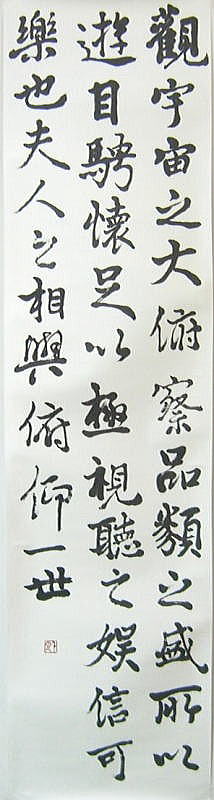 觀宇宙之大俯察品類之盛所以
遊目騁懷足以極視聽之娛信可
樂也夫人之相與俯仰一世